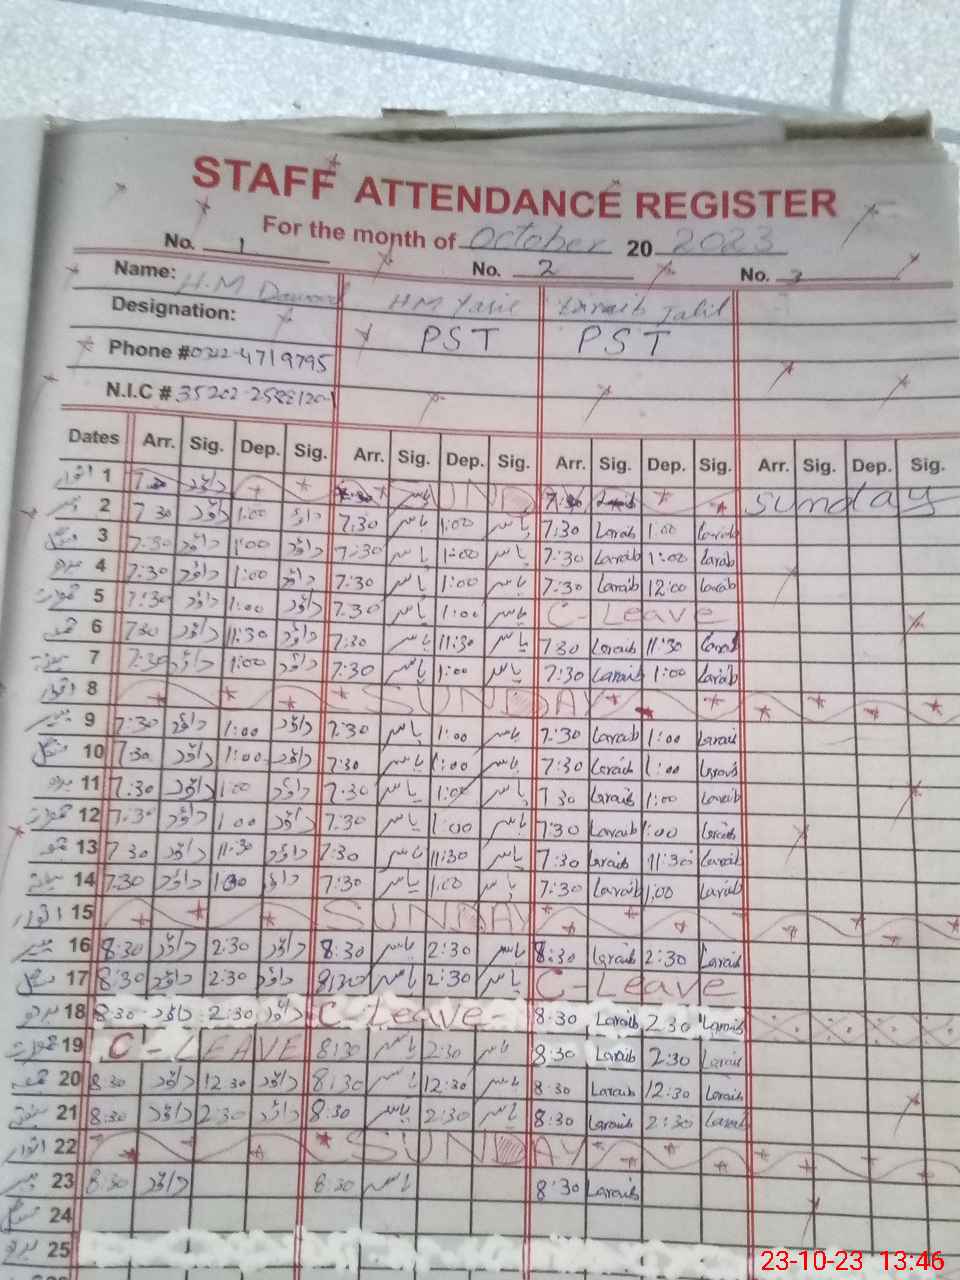 STAFF ATTENDANCE REGISTER
For the month of October 20 2023
No. 1 No. 2 No. 3
Name: H.M HM Yasir Jalil
Designation: PST PST
Phone #0322-4719795
N.I.C # 35202-2588120
Dates Arr. Sig. Dep. Sig. Arr. Sig. Dep. Sig. Arr. Sig. Dep. Sig. Arr. Sig. Dep. Sig.
اتوار 1 داؤد یاسر Sunday
پیر 2 7:30 داؤد 1:00 داؤد 7:30 یاسر 1:00 یاسر 7:30 Laraib 1:00 Laraib
منگل 3 7:30 داؤد 1:00 داؤد 7:30 یاسر 1:00 یاسر 7:30 Laraib 1:00 Laraib
بدھ 4 7:30 داؤد 1:00 داؤد 7:30 یاسر 1:00 یاسر 7:30 Laraib 12:00 Laraib
جمعرات 5 7:30 داؤد 1:00 داؤد 7:30 یاسر 1:00 یاسر C-Leave
جمعہ 6 7:30 داؤد 11:30 داؤد 7:30 یاسر 11:30 یاسر 7:30 Laraib 11:30 Laraib
ہفتہ 7 7:30 داؤد 1:00 داؤد 7:30 یاسر 1:00 یاسر 7:30 Laraib 1:00 Laraib
اتوار 8 SUNDAY
پیر 9 7:30 داؤد 1:00 داؤد 7:30 یاسر 1:00 یاسر 7:30 Laraib 1:00 Laraib
منگل 10 7:30 داؤد 1:00 داؤد 7:30 یاسر 1:00 یاسر 7:30 Laraib 1:00 Laraib
بدھ 11 7:30 داؤد 1:00 داؤد 7:30 یاسر 1:00 یاسر 7:30 Laraib 1:00 Laraib
جمعرات 12 7:30 داؤد 1:00 داؤد 7:30 یاسر 1:00 یاسر 7:30 Laraib 1:00 Laraib
جمعہ 13 7:30 داؤد 11:30 داؤد 7:30 یاسر 11:30 یاسر 7:30 Laraib 11:30 Laraib
ہفتہ 14 7:30 داؤد 1:00 داؤد 7:30 یاسر 1:00 یاسر 7:30 Laraib 1:00 Laraib
اتوار 15 SUNDAY
پیر 16 8:30 داؤد 2:30 داؤد 8:30 یاسر 2:30 یاسر 8:30 Laraib 2:30 Laraib
منگل 17 8:30 داؤد 2:30 داؤد 8:30 یاسر 2:30 یاسر C-Leave
بدھ 18 8:30 داؤد 2:30 داؤد C-Leave- 8:30 Laraib 2:30 Laraib
جمعرات 19 C-LEAVE 8:30 یاسر 2:30 یاسر 8:30 Laraib 2:30 Laraib
جمعہ 20 8:30 داؤد 12:30 داؤد 8:30 یاسر 12:30 یاسر 8:30 Laraib 12:30 Laraib
ہفتہ 21 8:30 داؤد 2:30 داؤد 8:30 یاسر 2:30 یاسر 8:30 Laraib 2:30 Laraib
اتوار 22 SUNDAY
پیر 23 8:30 داؤد 8:30 یاسر 8:30 Laraib
منگل 24
بدھ 25
23-10-23 13:46